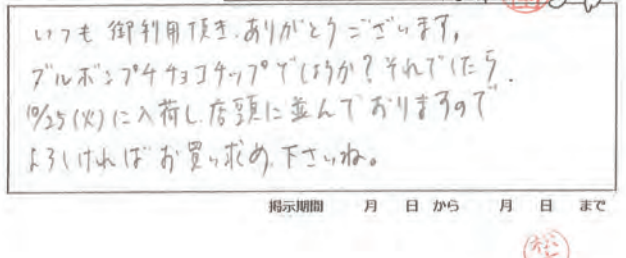 いつも御利用頂き、ありがとうございます。
ブルボンプチチョコチップでしょうか？それでしたら、
10/25(火)に入荷し、店頭に並んでおりますので
よろしければお買い求め下さいね。
掲示期間　月　日 から　月　日 まで